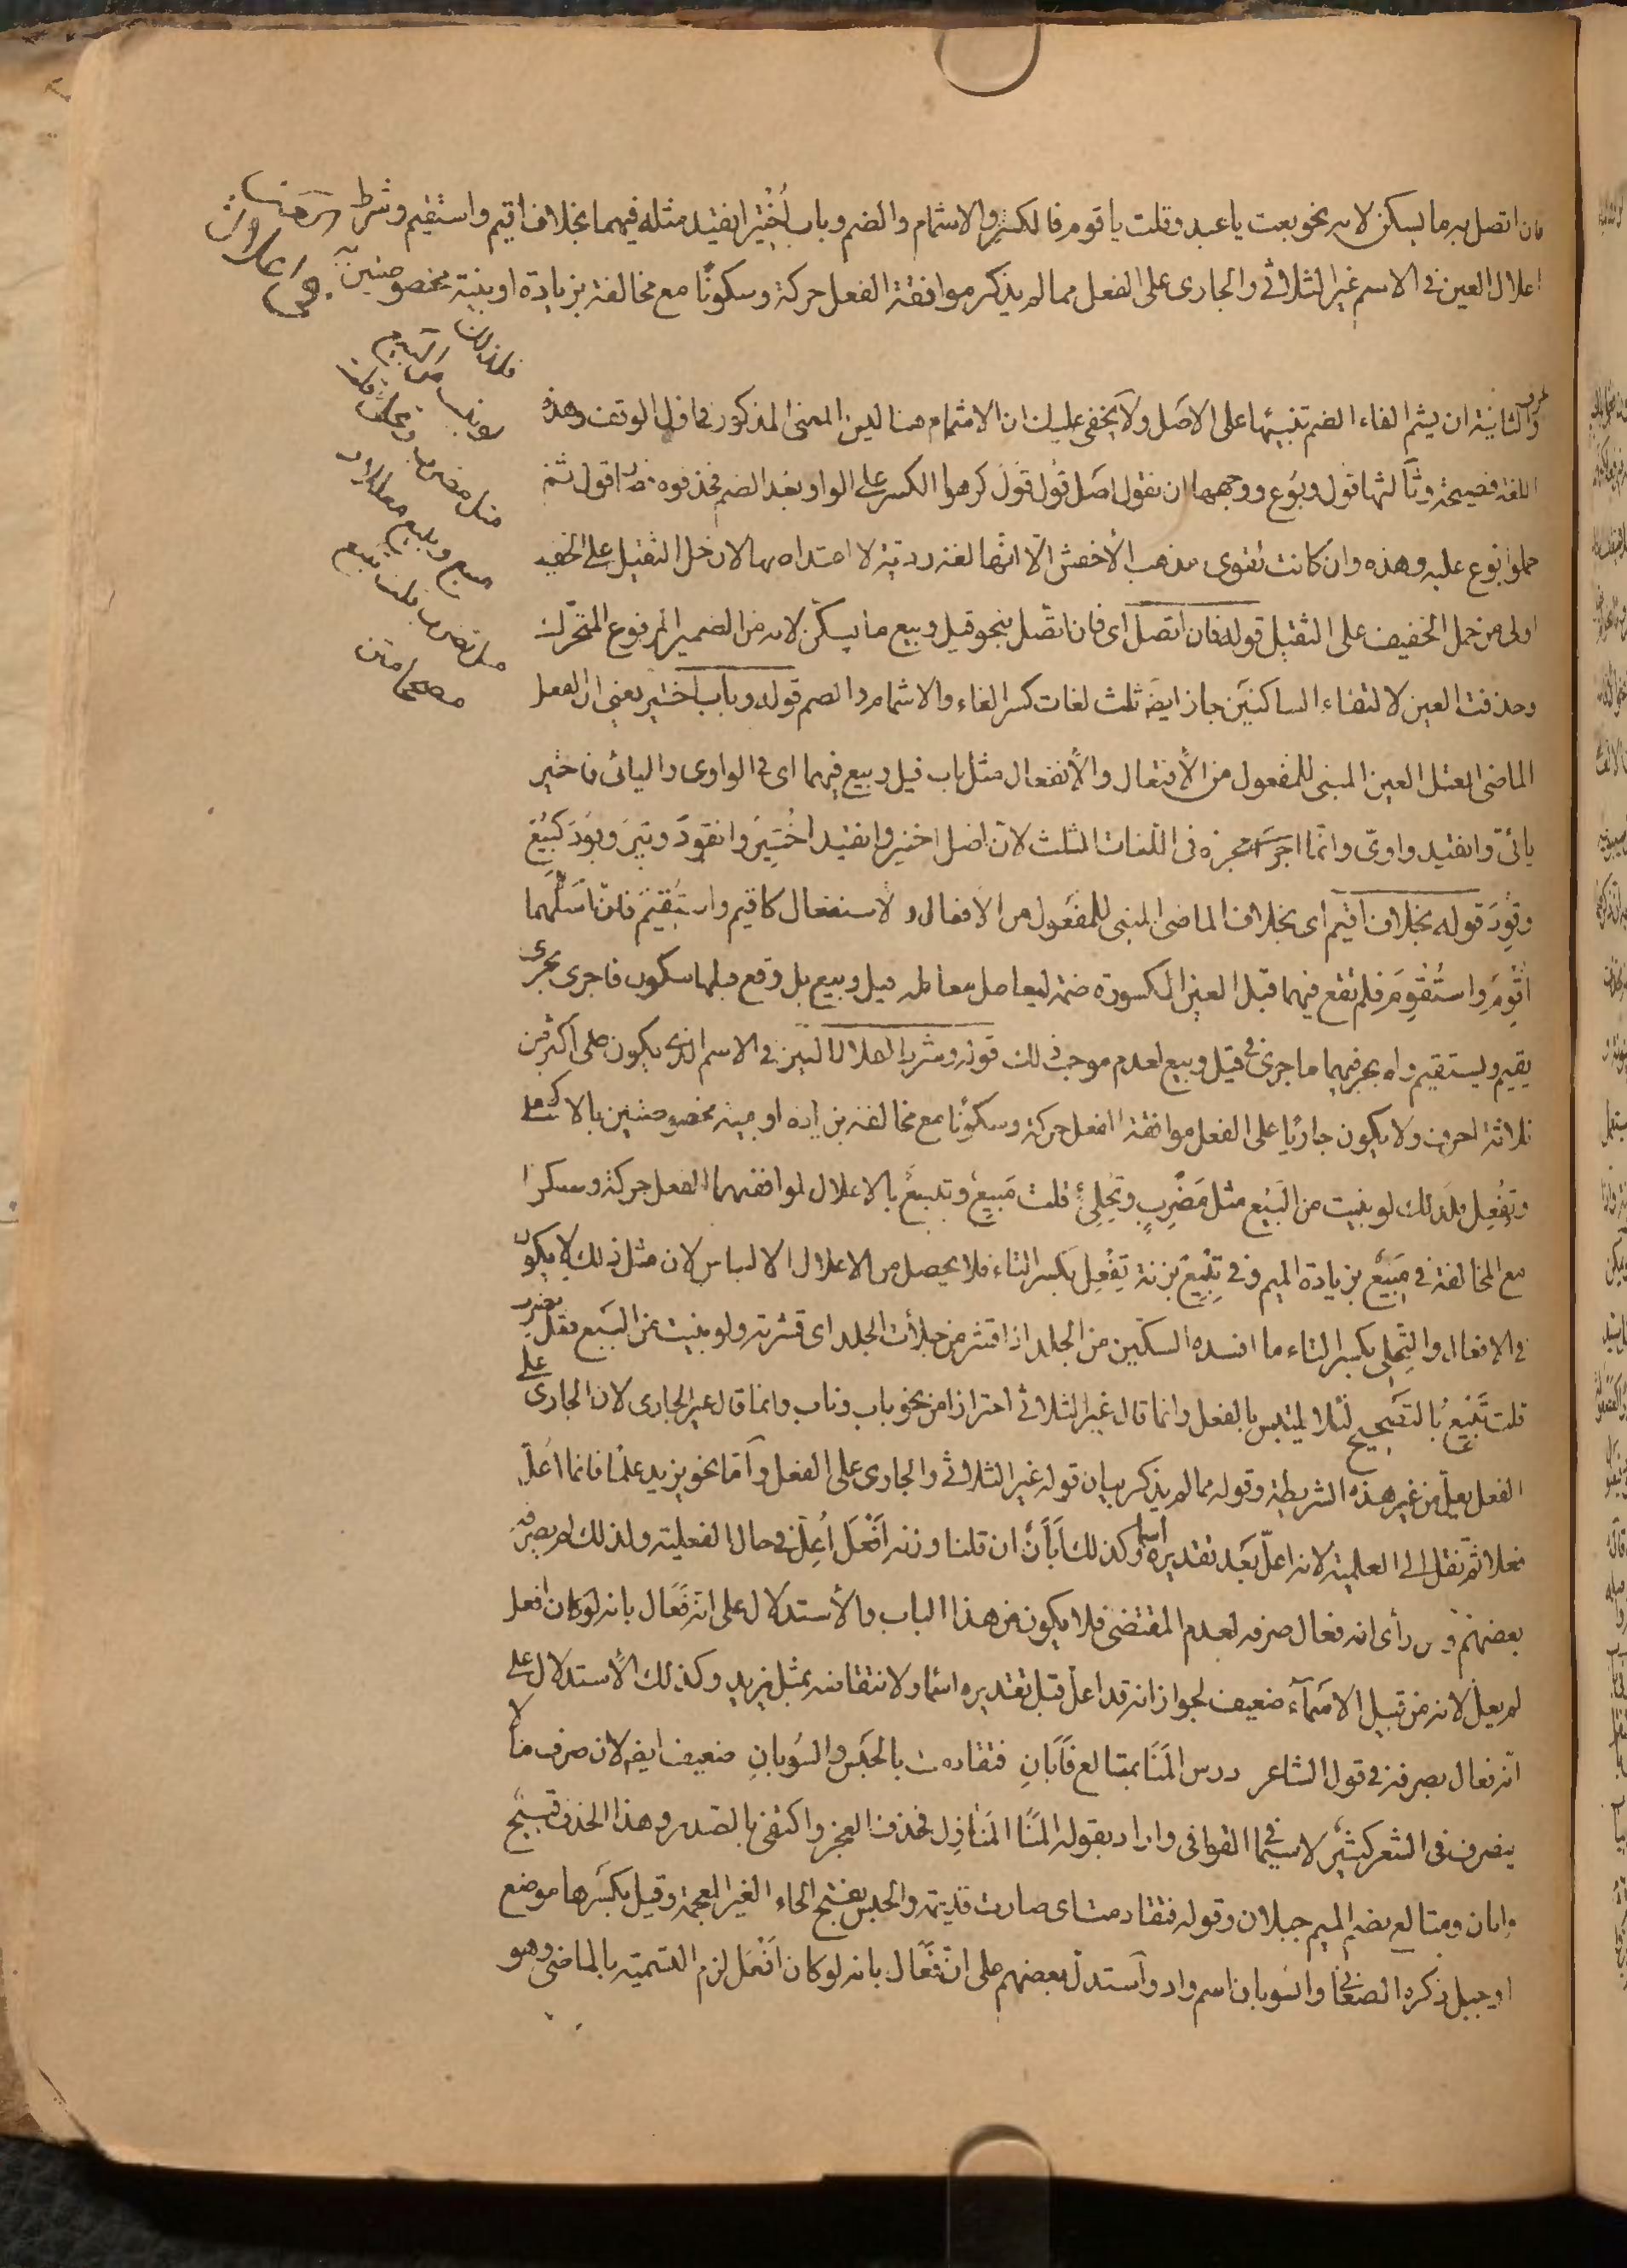 فان اتصل به ما يسكن لامه نحو بعت يا عبد وقلت يا قوم فالكسر والاشمام والضم وباب اُختير انقيد مثله فيهما بخلاف اقيم واستقيم وشرط
اعلال العين في الاسم غير الثلاثي والجارى على الفعل مما لم يذكر موافقة الفعل حركة وسكونًا مع مخالفة بزيادة او بنية مخصوصتين
فلذلك
لو بنيت من البيع
مثل مضرب وتحلئ قلت
مبيع وتبيع معلا
مثل تضرب قلت تبيع
مصححا متن
والثانية ان يشم الفاء الضم تنبيها على الاصل ولا يخفى عليك ان الاشمام هنا ليس المعنى المذكور في الوقف وهذه
اللغة فصيحة وثالثها قول وبُوع ووجهها ان نقول اصل قُول قُوِلَ كرهوا الكسر على الواو بعد الضم فحذفوه اقول ثم
حملوا بُوع عليه وهذه وان كانت تقوى مذهب الأخفش الّا انّها لغة رديّة لا اعتداد بها لان حمل الثقيل على الخفيف
اولى من حمل الخفيف على الثقيل قوله فان اتصل اى فان اتّصل بنحو قيل وبيع ما يسكّن لامه من الضمير المرفوع المتحرّك
وحذفت العين لالتقاء الساكنين جاز ايضًا ثلث لغات كسر الفاء والاشمام والضم قوله وباب اختير يعنى ان الفعل
الماضى المعتل العين المبنى للمفعول من الأفتعال والأنفعال مثل باب قيل وبيع فيهما اى في الواوى واليائى فاختير
يائىّ وانقيد واوىّ وانّما اجرى مجراه فى اللّغات الثلث لانّ اصل اختير وانقيد اُخْتُيِرَ وانقُوِدَ وتُيِرَ وقُوِدَ كبُيِعَ
وقُوِدَ قوله بخلاف اقيم اى بخلاف الماضى المبنى للمفعول من الافعال والاستفعال كاقيم واستُقيم فانّ اصلهما
اُقْوِمَ واستُقْوِمَ فلم تقع فيهما قبل العين المكسورة ضمة ليعامل معاملة قيل وبيع بل وقع قبلها سكون فاجرى مجرى
يقيم ويستقيم ولم يجر فيهما ما جرى في قيل وبيع لعدم موجب ذلك قوله وشرط اعلال العين في الاسم الذى يكون على اكثر من
ثلاثة احرف ولا يكون جاريًا على الفعل موافقة الفعل حركة وسكونًا مع مخالفة بزيادة او بنية مخصوصتين بالاسم
وتِفْعِل فلذلك لو بنيت من البَيْع مثل مَضْرِبٍ وتِحْلِئٍ قلت مَبِيعٌ وتِبِيعٌ بالاعلال لموافقتهما الفعل حركة وسكونا
مع المخالفة في مَبِيعٌ بزيادة الميم وفي تِبِيعٌ بزنة تِفْعِل بكسر التاء فلا يحصل من الاعلال الالباس لان مثل ذلك لا يكون
في الافعال والتِحْلِى بكسر التاء ما افسده السكّين من الجلد اذا قشر من حلأت الجلد اى قشرته ولو بنيت من البَيْع مثل تضرب
قلت تَبْيِعٌ بالتصحيح لئلا يلتبس بالفعل وانما قال غير الثلاثي احترازا من نحو باب وناب وانما قال غير الجارى لان الجارى على
الفعل يعلّ من غير هذه الشريطة وقوله مما لم يذكر بيان قوله غير الثلاثي والجارى على الفعل وأمّا نحو يزيد علمًا فانما اُعلّ
فعلا ثمّ نقل الى العلمية لانه اعلّ بعد تقديره اسما وكذلك أبَان ان قلنا وزنه اَفْعَل اُعِلّ في حال الفعلية ولذلك لم يصرفه
بعضهم ومن رأى انه فعال صرفه لعدم المقتضى فلا يكون من هذا الباب والأستدلال على انّه فَعَال بانه لو كان افعل
لم يعل لانه من قبيل الاسماء ضعيف لجواز انه قد اعلّ قبل تقديره اسما ولانتقاضه بمثل يزيد وكذلك الأستدلال على
انّه فعال بصرفه في قول الشاعر درس المَنَا بمتالع فَأَبَانِ فتقادمت بالحبس والسُوبانِ ضعيف ايضا لان صرف ما لا
ينصرف فى الشعر كثير لا سيّما في القوافى واراد بقوله المنَا المَنَازِل فحذف العجز واكتفى بالصدر وهذا الحذف قبيح
وابان ومتالع بضم الميم جبلان وقوله فتقادمت اى صارت قديمة والحبس بفتح الحاء الغير المعجمة وقيل بكسرها موضع
او جبل ذكره الصغانى والسّوبان اسم واد وٱستدلّ بعضهم على انّه فَعَال بانه لو كان اَفْعَل لزم التسمية بالماضى وهو